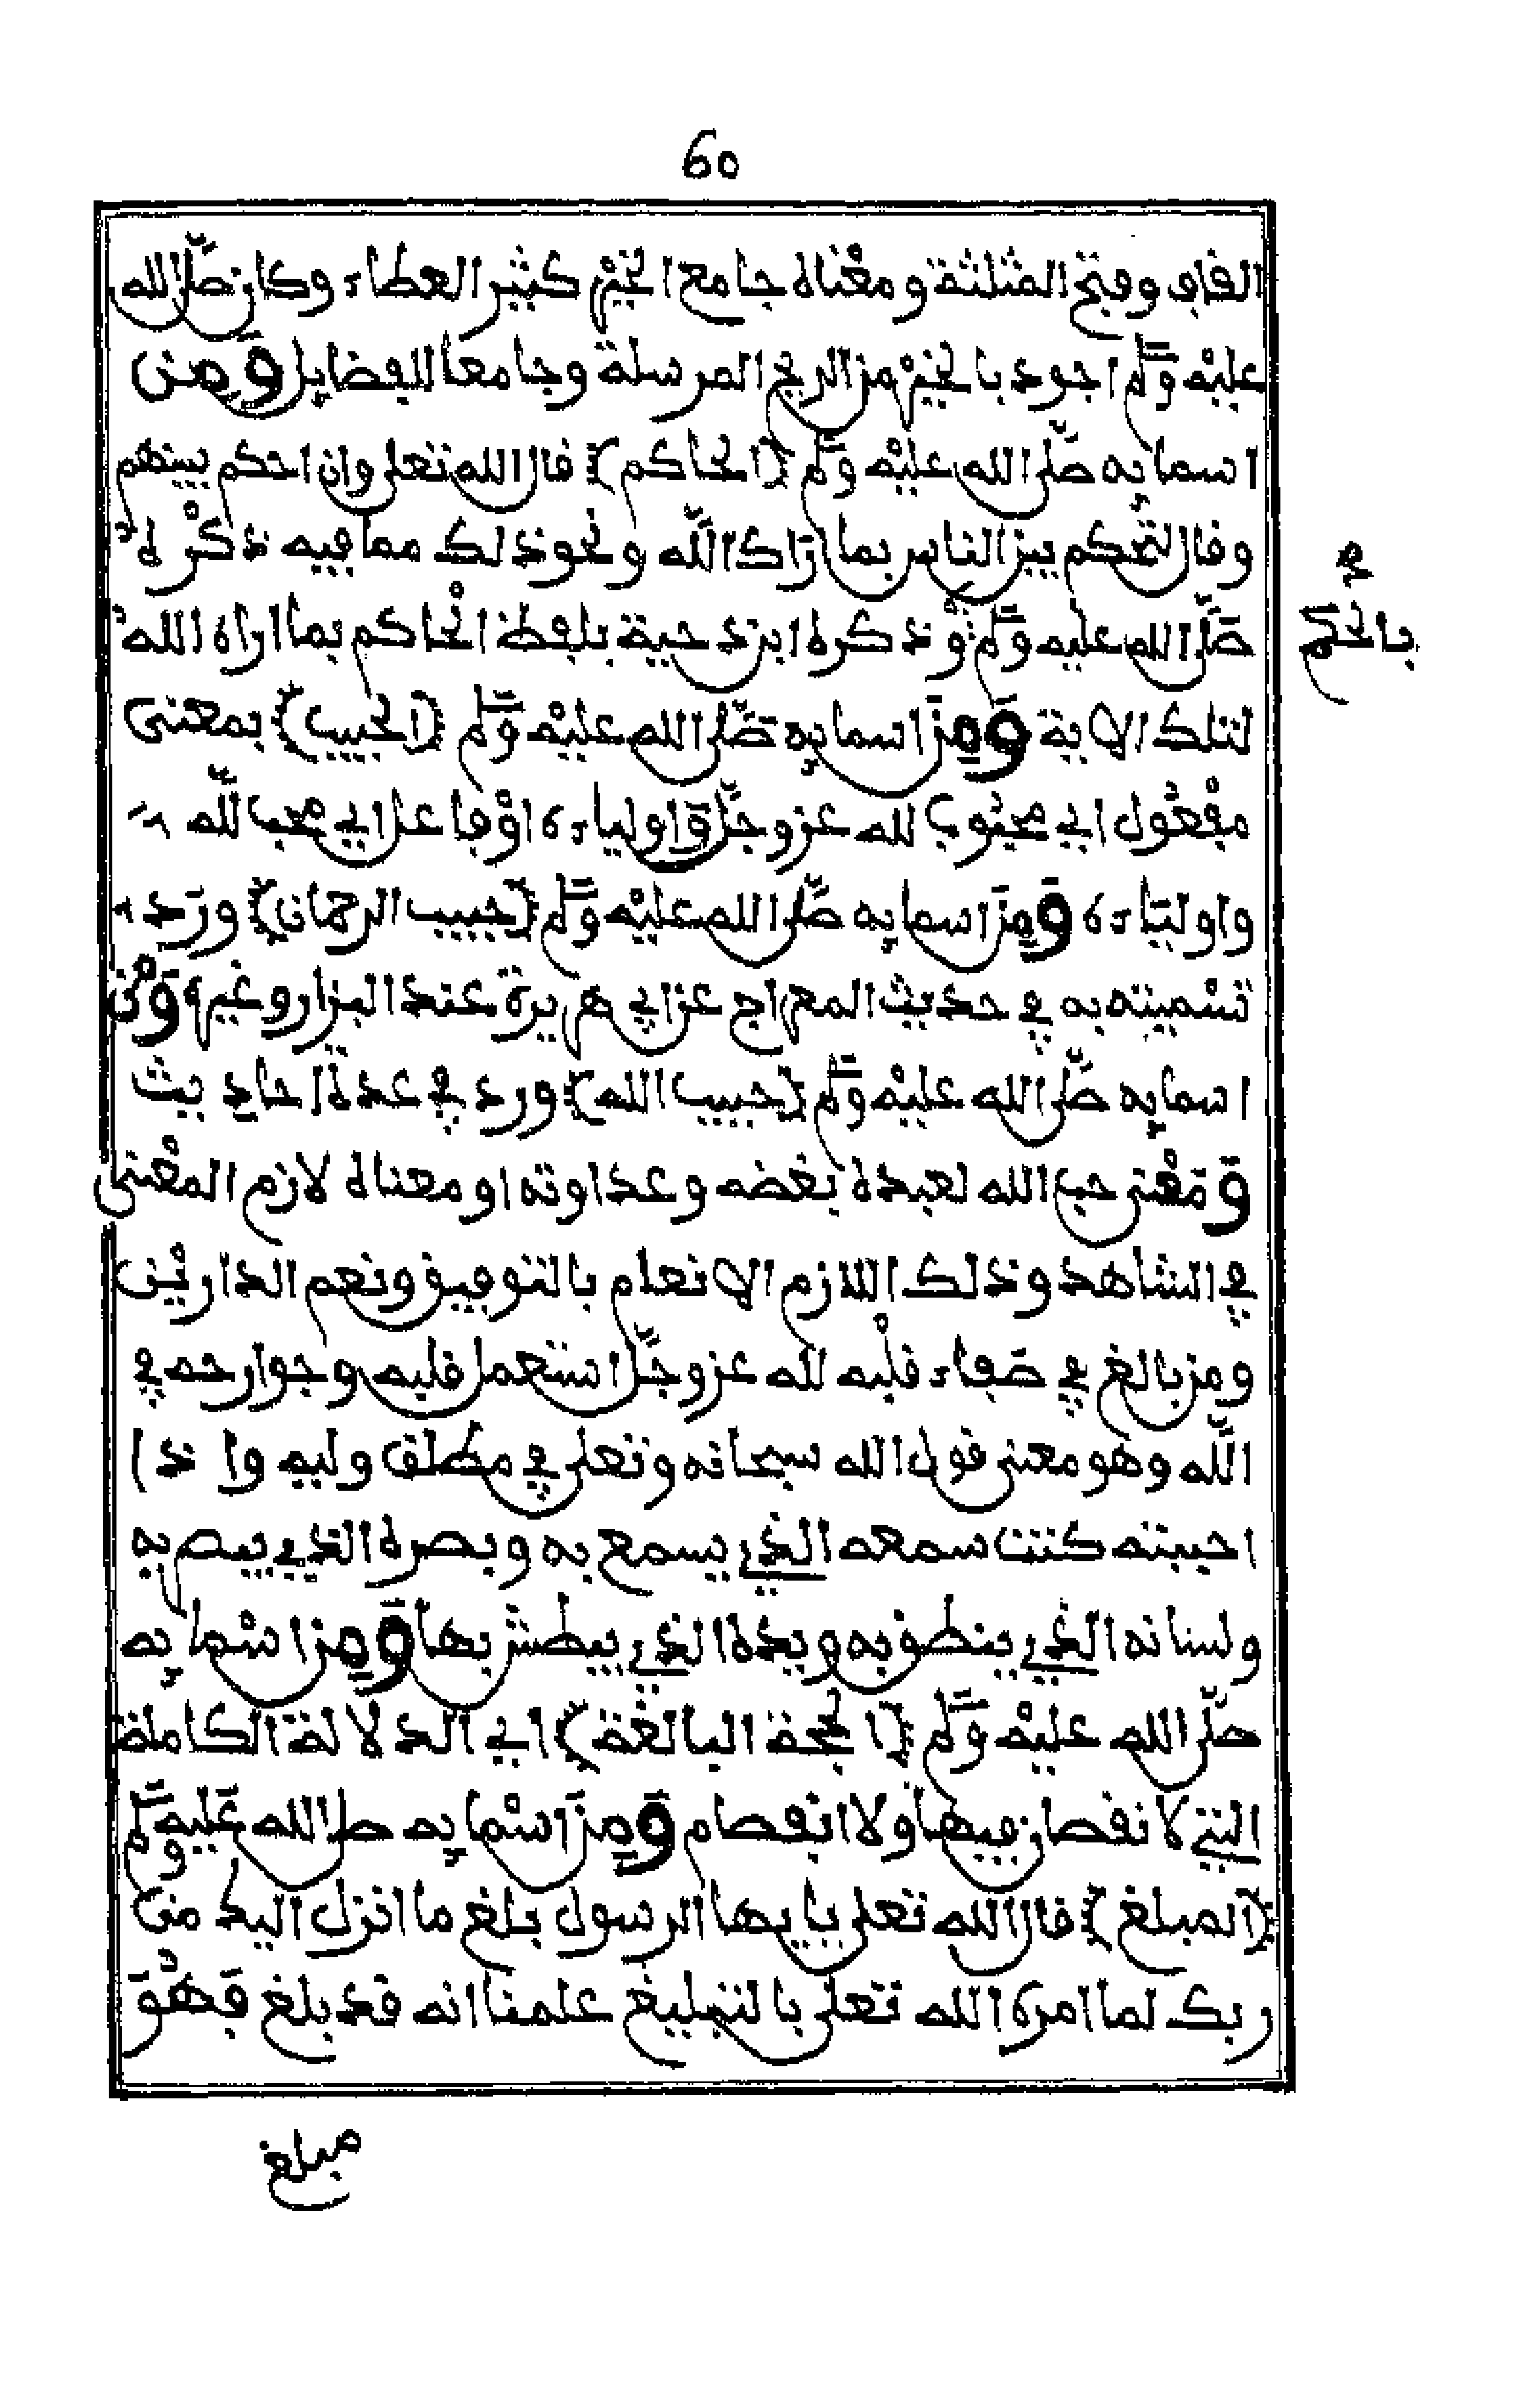 60
القاف وفتح المثلثة ومعناه جامع الخير كثير العطاء وكان صلى الله
عليه وسلم اجود بالخير من الريح المرسلة وجامعا للفضايل ومن
اسمايه صلى الله عليه وسلم (الحاكم) قال الله تعلى وان احكم بينهم
وقال لتحكم بين الناس بما اراك الله ونحو ذلك مما فيه ذكر له
صلى الله عليه وسلم وذكره ابن دحية بلفظ الحاكم بما اراه الله
بالحكم
لتلك الاية ومن اسمايه صلى الله عليه وسلم (الحبيب) بمعنى
مفعول اي محبوب لله عز وجل واولياءه او فاعل اي محب لله
واولياءه ومن اسمايه صلى الله عليه وسلم (حبيب الرحمان) ورد
تسميته به في حديث المعراج عن ابي هريرة عند البزار وغيره ومن
اسمايه صلى الله عليه وسلم (حبيب الله) ورد في عدة احاديث
ومعنى حب الله لعبده بغضه وعداوته او معناه لازم المعنى
في الشاهد وذلك اللازم الانعام بالتوفيق ونعم الدارين
ومن بالغ في صفاء قلبه لله عز وجل استعمل قلبه وجوارحه في
الله وهو معنى قول الله سبحانه وتعلى في مطلق وليه واذا
احببته كنت سمعه الذي يسمع به وبصره الذي يبصر به
ولسانه الذي ينطق به ويده الذي يبطش بها ومن اسمايه
صلى الله عليه وسلم (الحجة البالغة) اي الدلالة الكاملة
التي لا نقصان فيها ولا انفصام ومن اسمايه صلى الله عليه وسلم
(المبلغ) قال الله تعلى يايها الرسول بلغ ما انزل اليك من
ربك لما امره الله تعلى بالتبليغ علمنا انه قد بلغ فهو
مبلغ